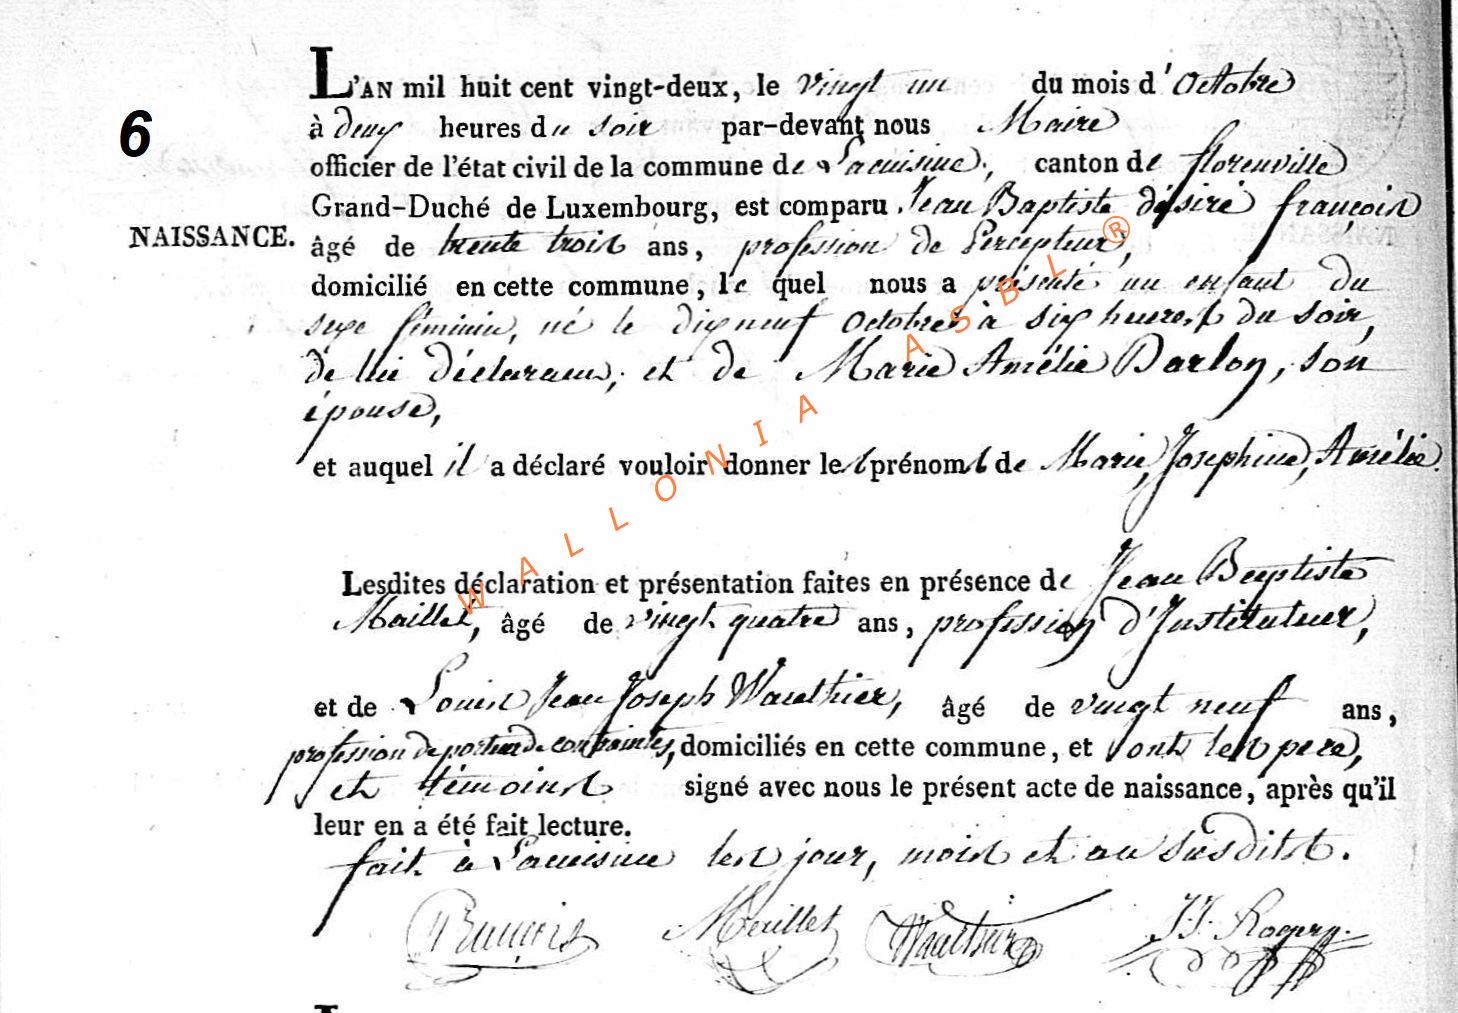 L'AN mil huit cent vingt-deux, le vingt un du mois d'Octobre
6
à deux heures du soir par-devant nous Maire
officier de l'état civil de la commune de Lacuisine, canton de florenville
Grand-Duché de Luxembourg, est comparu Jean Baptiste désiré françois
NAISSANCE.
âgé de trente trois ans, profession de Percepteur,
domicilié en cette commune, le quel nous a présenté un enfant du
sexe féminin, né le dix neuf Octobre à six heures du soir,
de lui déclarant, et de Marie Amélie Darlon, son
épouse,
et auquel il a déclaré vouloir donner les prénoms de Marie, Josephine, Amélie.
Lesdites déclaration et présentation faites en présence de Jean Baptiste
Maillet, âgé de vingt quatre ans, profession d'Instituteur,
et de Louis Jean Joseph Wauthier, âgé de vingt neuf ans,
profession de porteur de contraintes, domiciliés en cette commune, et ont les pere,
et témoins signé avec nous le présent acte de naissance, après qu'il
leur en a été fait lecture.
fait à Lacuisine les jour, mois et an susdits.
François Maillet Wauthier J J Rogery
WALLONIA ASBL ®